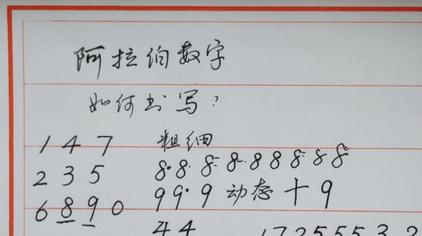 阿拉伯数字
如何书写?
1 4 7 粗细
2 3 5 8·8·8·8·8 8 8 8 8
6 8 9 0 9 9·9 动态 十 9
4 4 1 7 2 5 5 5 3 2